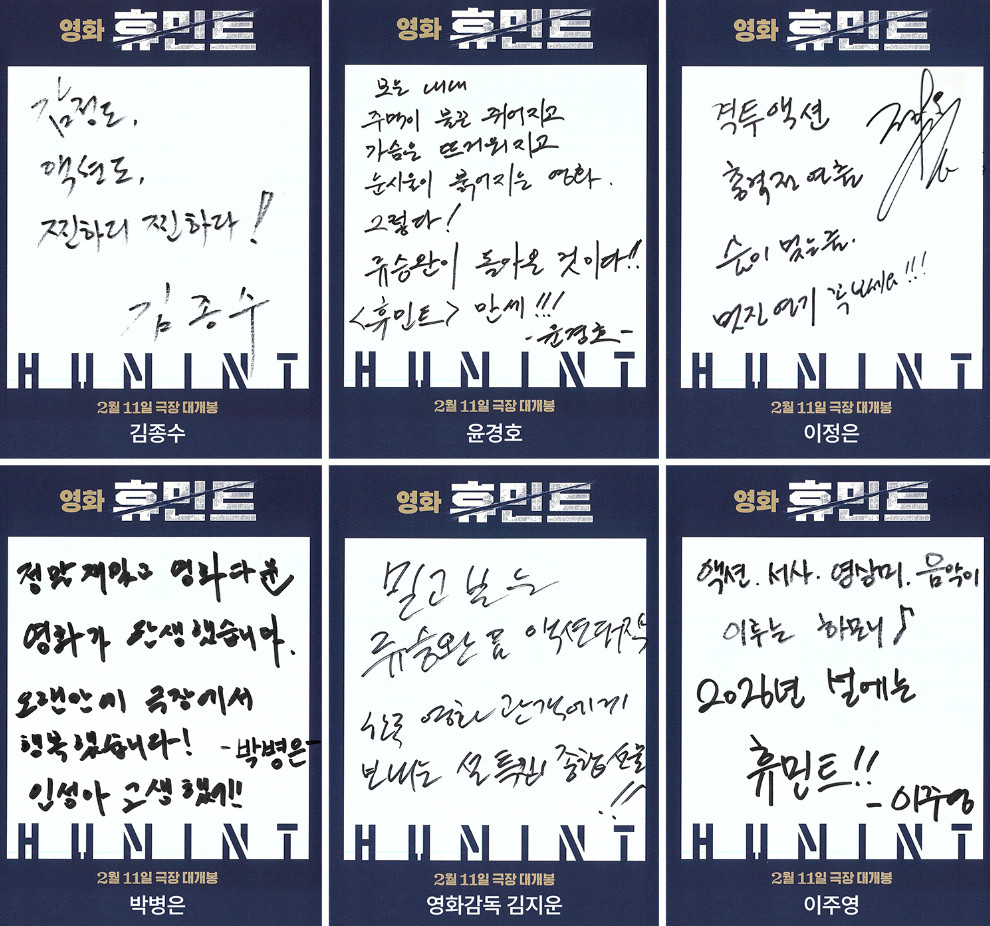 영화 휴민트
감정도,
액션도,
찐하디 찐하다!
김종수
HUMINT
2월 11일 극장 대개봉
김종수
영화 휴민트
보는 내내
주먹이 불끈 쥐어지고
가슴은 뜨거워지고
눈시울이 붉어지는 영화.
그렇다!
류승완이 돌아온 것이다!!
<휴민트> 만세!!!
-윤경호-
HUMINT
2월 11일 극장 대개봉
윤경호
영화 휴민트
격투액션
총격전 연출
숨이 멎는줄.
멋진연기 꼭 보세요!!!
HUMINT
2월 11일 극장 대개봉
이정은
영화 휴민트
정말 재밌고 영화다운
영화가 탄생했습니다.
오랜만에 극장에서
행복했습니다! -박병은-
인성아 고생했어!!
HUMINT
2월 11일 극장 대개봉
박병은
영화 휴민트
믿고 보는
류승완 표 액션대작
한국 영화 관객에게
보내는 설 종합선물
!!
HUMINT
2월 11일 극장 대개봉
영화감독 김지운
영화 휴민트
액션. 서사. 영상미. 음악이
이루는 하모니♪
2026년 설에는
휴민트!!
-이주영
HUMINT
2월 11일 극장 대개봉
이주영